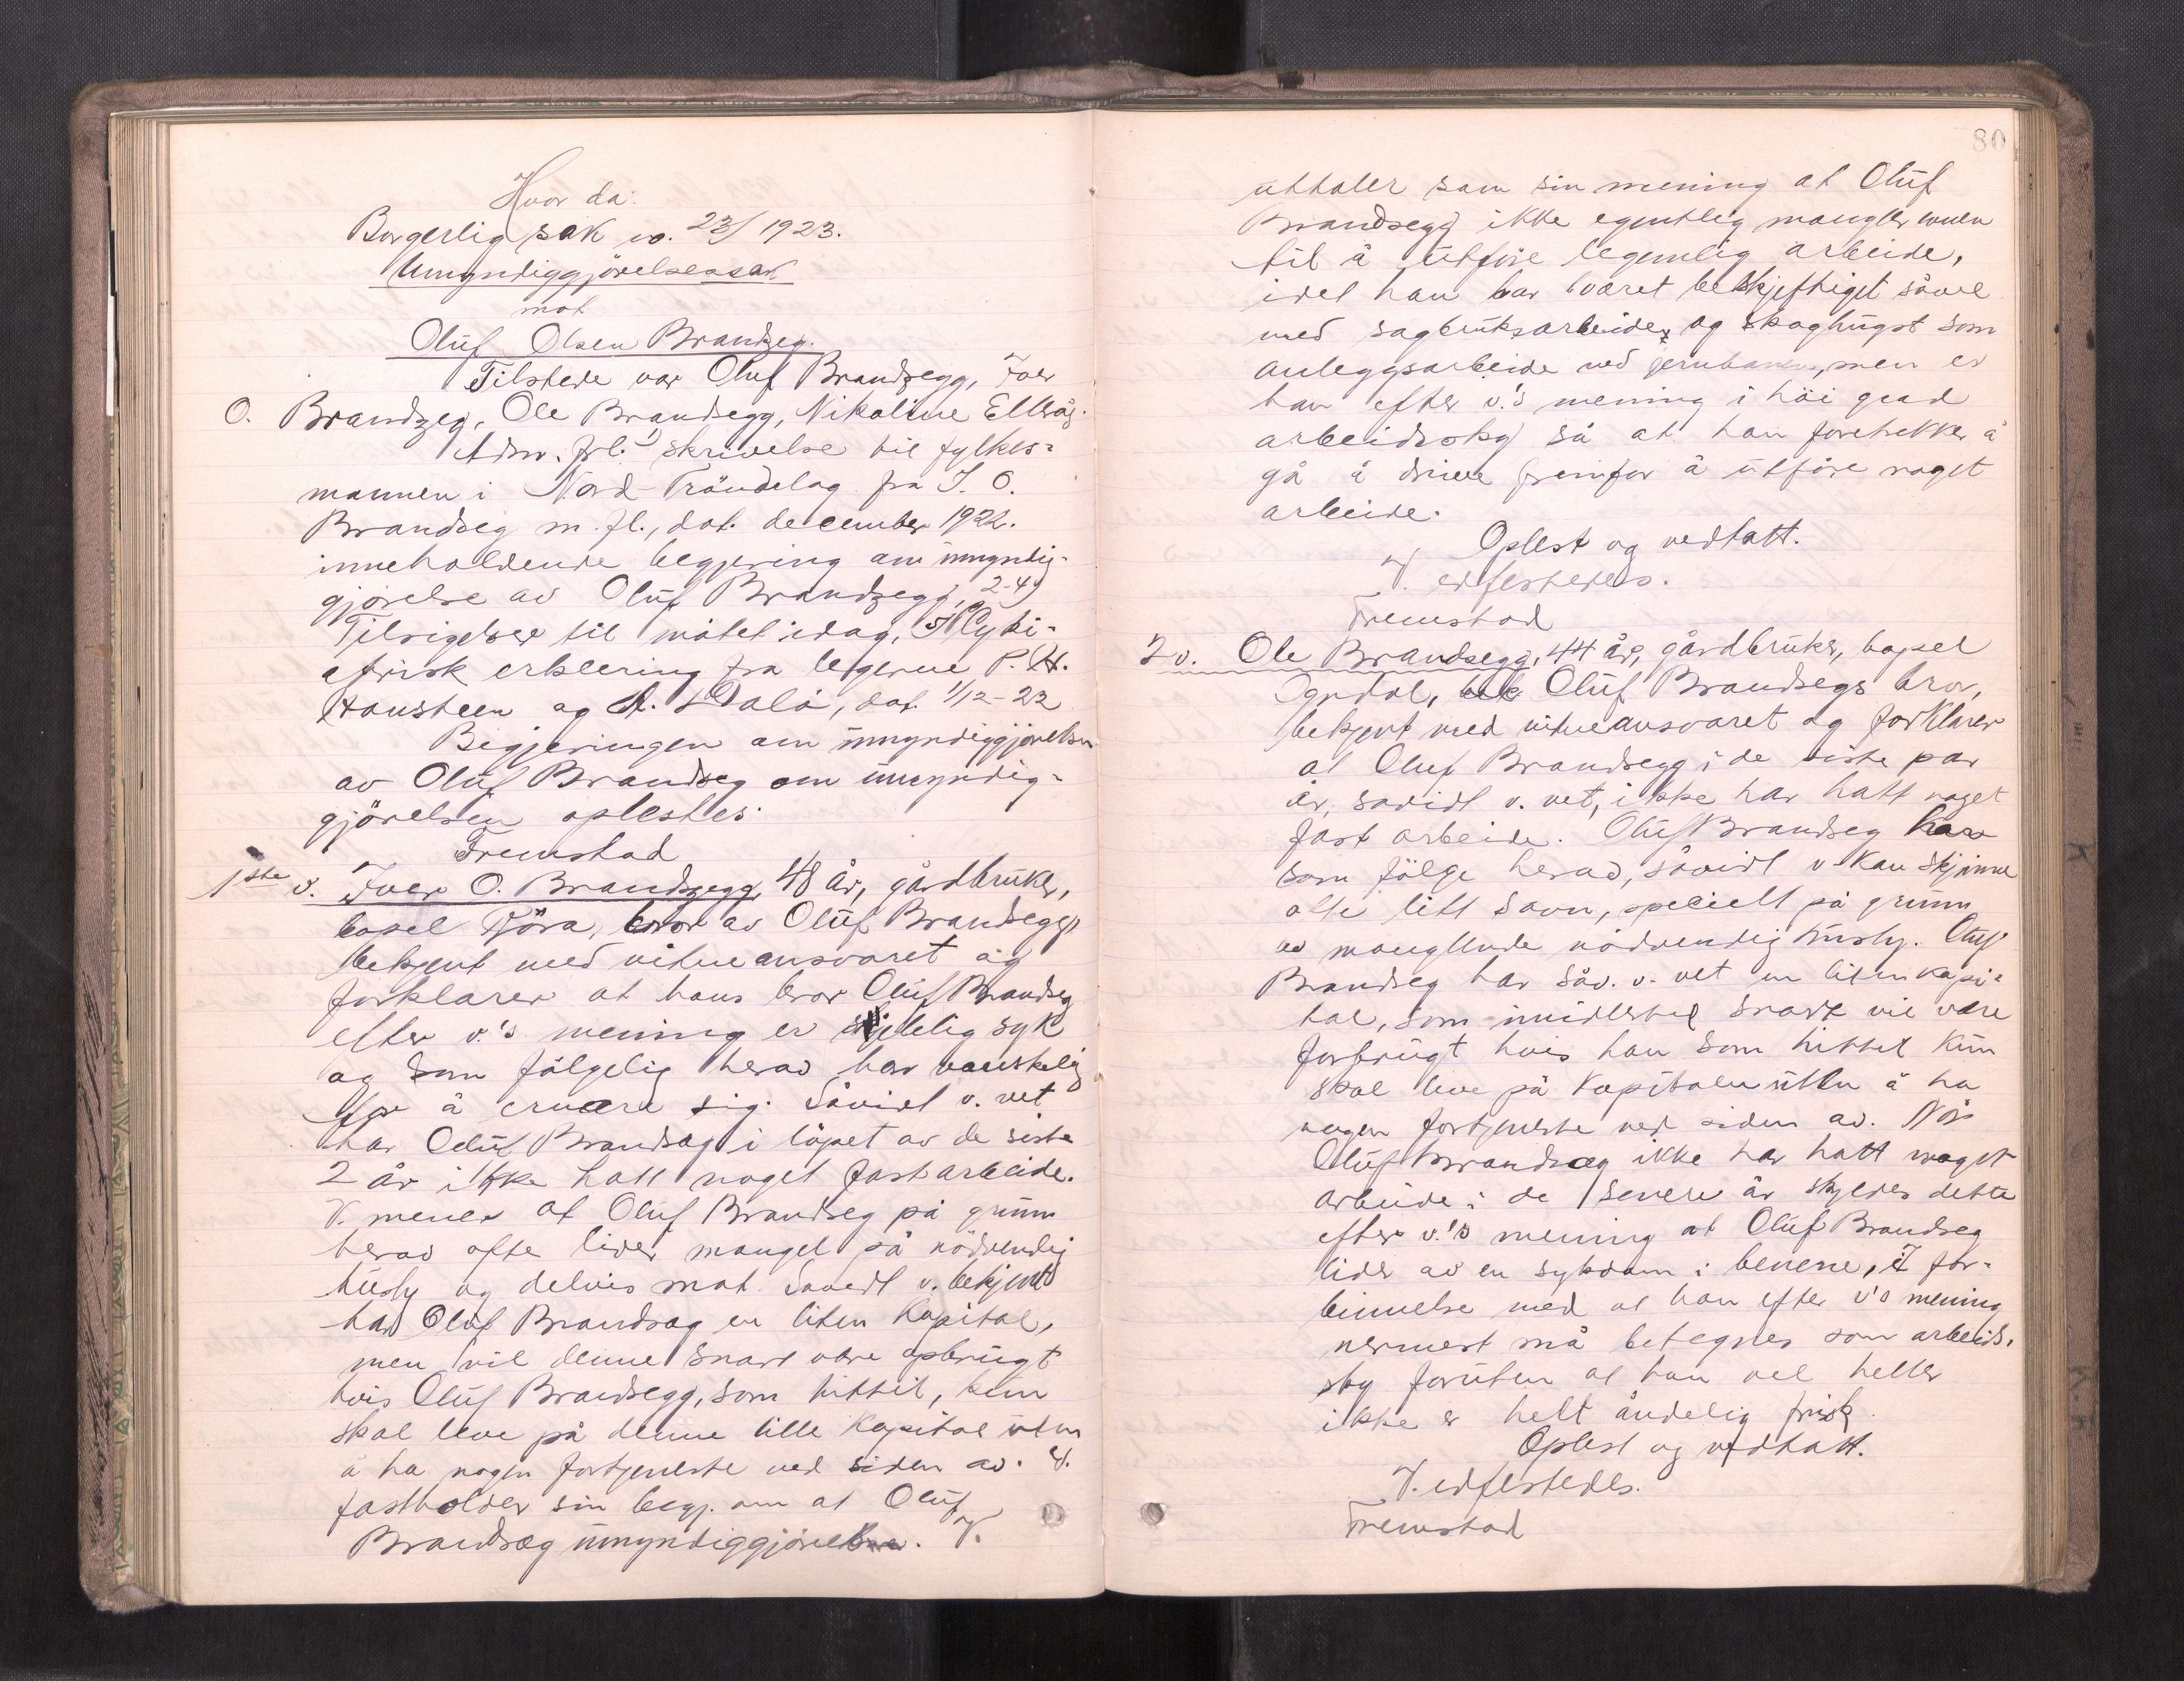 Hvor da:
Borgerlig sak no. 23/1923.
Umyndiggjörelsessak
mot
Oluf Olsen Brandseg.
Tilstede var Oluf Brandsegg, Iver
O. Brandzeg, Ole Brandsegg, Nikoline Ellsög.
Adm. frl. 1) skrivelse til fylkes-
mannen i Nord-Tröndelag fra I. O.
Brandseg m. fl., dat. december 1922.
inneholdende begjæring om umyndig-
gjörelse av Oluf Brandsegg, 2-4)
Tilsigelser til mötet idag, 5) Psyki-
atrisk erklering fra legerne P. W.
Hansteen og A. Dalö, dat. 1/12-22
Begjeringen om umyndiggjörelsen
av Oluf Brandseg om umyndig-
gjörelsen oplestes.
Fremstod
1ste v. Iver O. Brandzegg, 48 år, gårdbruker,
bopel Röra, bror av Oluf Brandsegg,
bekjent med vitneansvaret og
forklarer at hans bror Oluf Brandseg
efter v.'s mening er sjelelig syk
og som fölgelig herav har vanskelig
for å ernære sig. Såvidt v. vet
har Oluf Brandsæg i löpet av de siste
2 år ikke hatt noget fast arbeide.
V. mener at Oluf Brandseg på grunn
herav ofte lider mangel på nödvendig
husly og delvis mat. Savidt v. bekjent
har Oluf Brandsæg en liten kapital,
men vil denne snart være opbrugt
hvis Oluf Brandsegg, som hittil, kun
skal leve på denne lille kapital uten
å ha nogen fortjeneste ved siden av. V.
fastholder sin begj. om at Oluf
Brandsæg umyndiggjöres. V.
80
uttaler som sin mening at Oluf
Brandsegg ikke egentlig mangler evnen
til å utföre legemlig arbeide,
idet han har været beskjeftiget såvel
med sagbruksarbeide og skoghugst som
anleggsarbeide ved jernbanen, men er
han efter v.'s mening i höi grad
arbeidssky så at han foretrekker å
gå å drive fremfor å utföre noget
arbeide.
Oplest og vedtatt.
V. edfestedes.
Fremstod
2 v. Ole Brandsegg, 44 år, gårdbruker, bopel
Ogndal, Oluf Brandsegs bror,
bekjent med vitneansvaret og forklarer
at Oluf Brandsegg i de siste par
år, såvidt v. vet, ikke har hatt noget
fast arbeide. Oluf Brandseg har
som fölge herav, såvidt v. kan skjönne
ofte litt savn, specielt på grunn
av manglende nödvendig husly. Oluf
Brandseg har såv. v. vet en liten kapi-
tal, som imidlertid snart vil være
forbrugt hvis han som hittil kun
skal leve på kapitalen uten å ha
nogen fortjeneste ved siden av. Når
Oluf Brandsæg ikke har hatt noget
arbeide i de senere år skyldes dette
efter v.'s mening at Oluf Brandseg
lider av en sykdom i benene, i for-
binnelse med at han efter v's mening
nermest må betegnes som arbeids-
sky foruten at han vel heller
ikke er helt åndelig frisk.
Oplest og vedtatt.
V. edfestedes.
Fremstod